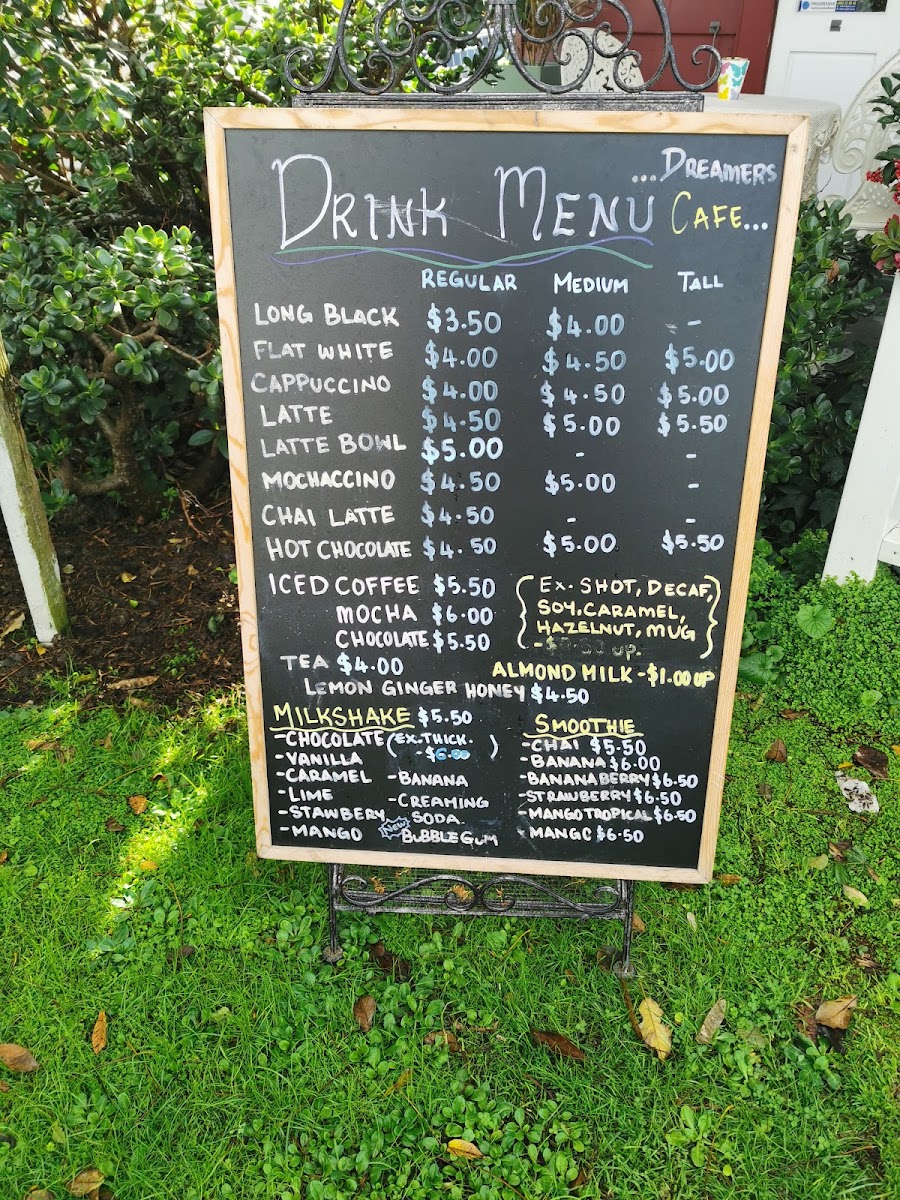 ...DREAMERS
DRINK MENU CAFE...
REGULAR MEDIUM TALL
LONG BLACK $3.50 $4.00 -
FLAT WHITE $4.00 $4.50 $5.00
CAPPUCCINO $4.00 $4.50 $5.00
LATTE $4.50 $5.00 $5.50
LATTE BOWL $5.00 - -
MOCHACCINO $4.50 $5.00 -
CHAI LATTE $4.50 - -
HOT CHOCOLATE $4.50 $5.00 $5.50
ICED COFFEE $5.50
MOCHA $6.00
CHOCOLATE $5.50
(EX. SHOT, DECAF,
SOY, CARAMEL,
HAZELNUT, MUG
UP.)
TEA $4.00
ALMOND MILK - $1.00 UP
LEMON GINGER HONEY $4.50
MILKSHAKE $5.50
- CHOCOLATE (EX. THICK.
- $6.00 )
- VANILLA
- CARAMEL
- LIME
- STAWBERY
- MANGO
- BANANA
- CREAMING
SODA.
New BUBBLEGUM
SMOOTHIE
- CHAI $5.50
- BANANA $6.00
- BANANA BERRY $6.50
- STRAWBERRY $6.50
- MANGO TROPICAL $6.50
- MANGO $6.50